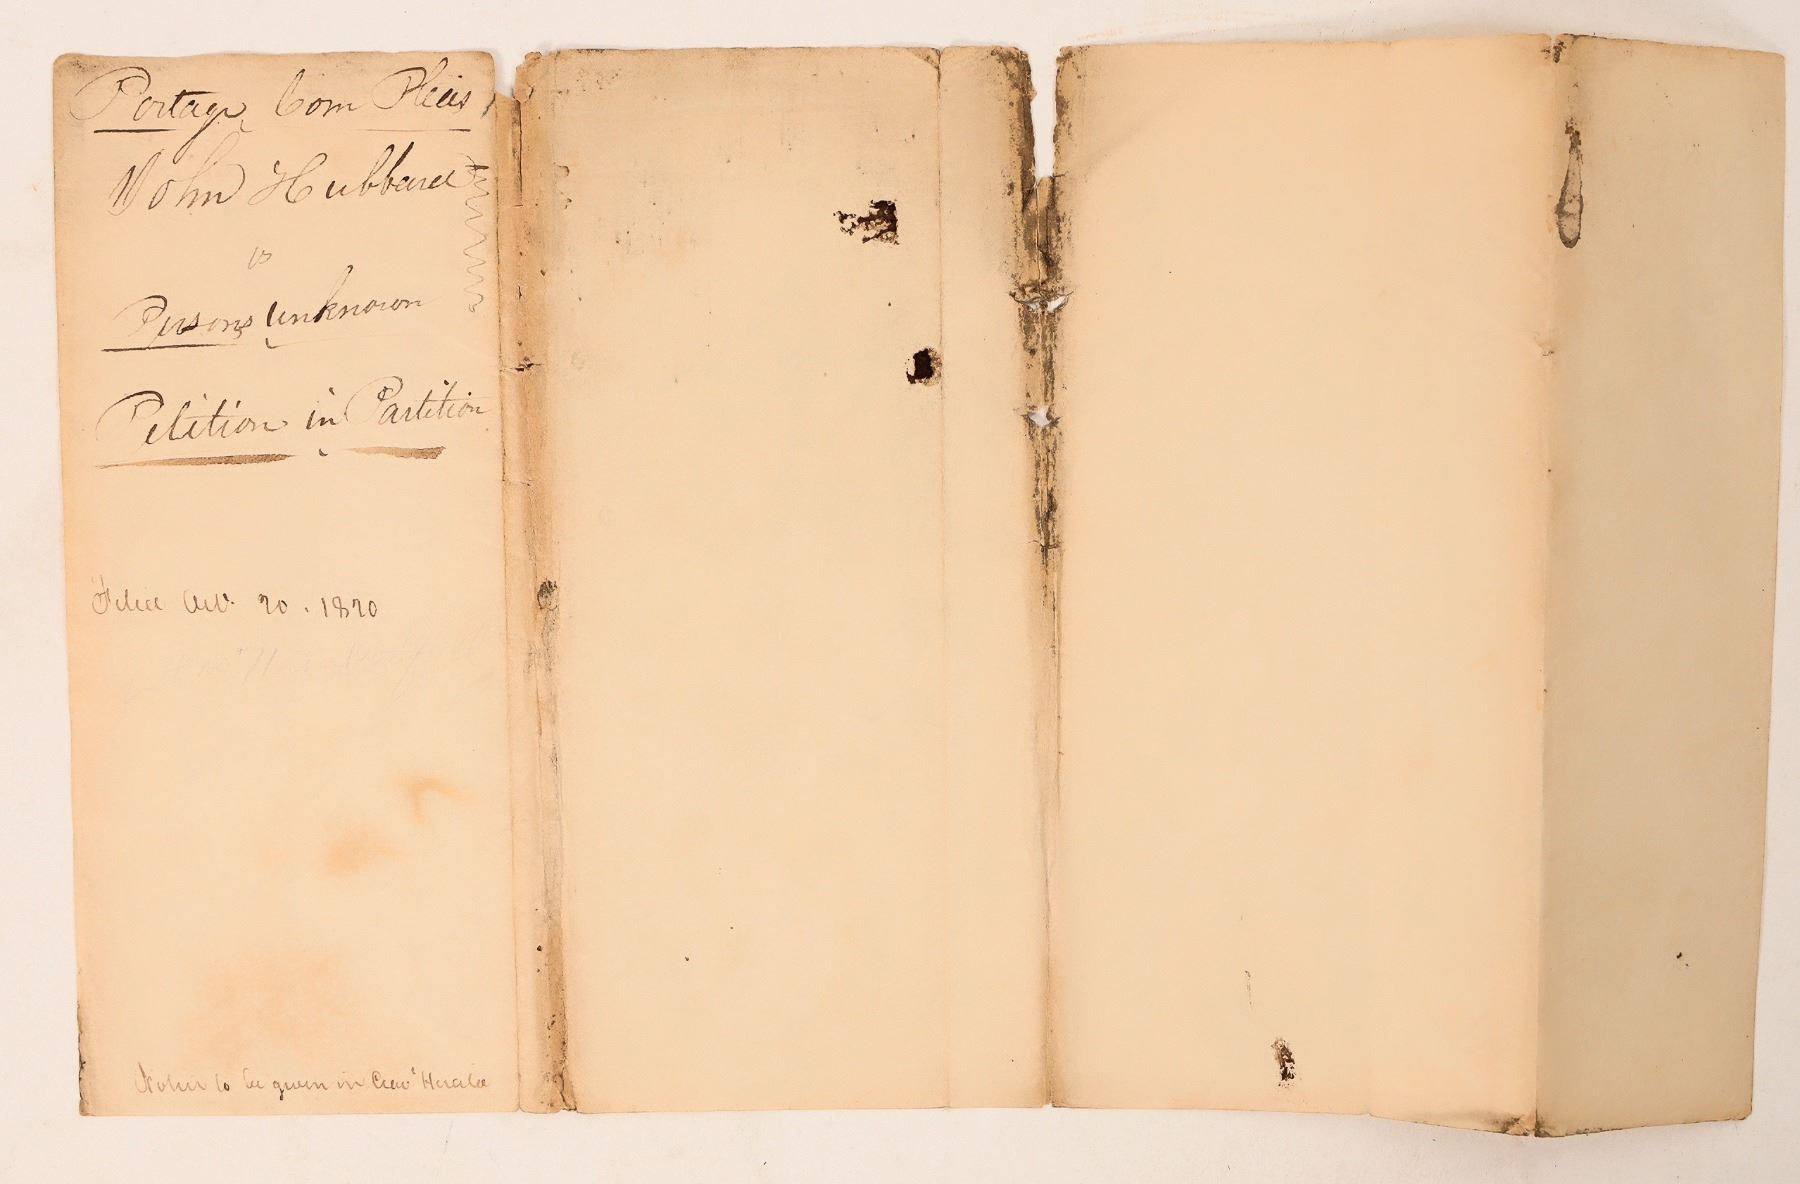 Portage Com Pleas
John Hubbard
vs
Persons unknown
Petition in Partition
Filed Oct. 20. 1820
Notice to be given in Cleavd Herald